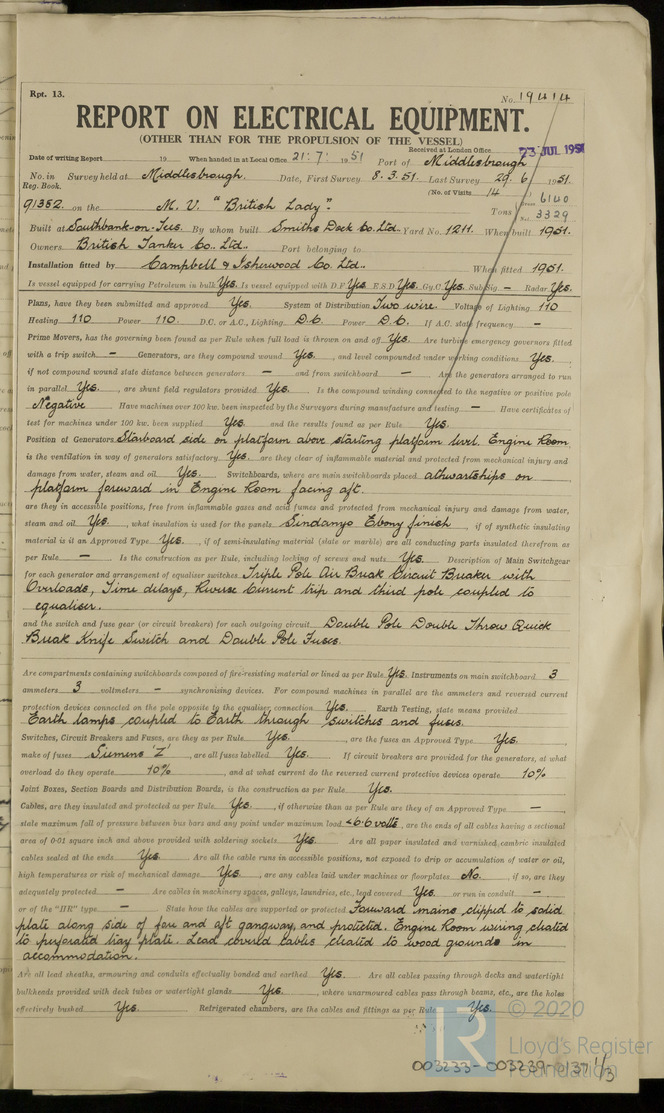 Rpt. 13.
No. 19414
REPORT ON ELECTRICAL EQUIPMENT.
(OTHER THAN FOR THE PROPULSION OF THE VESSEL)
Received at London Office 23 JUL 1951
Date of writing Report 19 When handed in at Local Office 21.7.1951 Port of Middlesbrough
No. in Reg. Book. Survey held at Middlesbrough. Date, First Survey 8.3.51. Last Survey 29.6.1951.
(No. of Visits 14)
91352. on the M.V. "British Lady". Tons Gross 6140 Net 3329
Built at Southbank-on-Tees. By whom built Smiths Dock Co. Ltd. Yard No. 1211. When built 1951.
Owners British Tanker Co., Ltd.. Port belonging to
Installation fitted by Campbell & Isherwood Co. Ltd.. When fitted 1951.
Is vessel equipped for carrying Petroleum in bulk Yes. Is vessel equipped with D.F. Yes E.S.D. Yes. Gy.C. Yes. Sub.Sig. – Radar Yes.
Plans, have they been submitted and approved Yes. System of Distribution Two wire. Voltage of Lighting 110
Heating 110 Power 110. D.C. or A.C., Lighting D.C. Power D.C. If A.C. state frequency –
Prime Movers, has the governing been found as per Rule when full load is thrown on and off Yes. Are turbine emergency governors fitted
with a trip switch – Generators, are they compound wound Yes. and level compounded under working conditions Yes.
if not compound wound state distance between generators – and from switchboard – Are the generators arranged to run
in parallel Yes. , are shunt field regulators provided Yes. Is the compound winding connected to the negative or positive pole
Negative Have machines over 100 kw. been inspected by the Surveyors during manufacture and testing – Have certificates of
test for machines under 100 kw. been supplied Yes and the results found as per Rule Yes.
Position of Generators Starboard side on platform above starting platform level. Engine Room
is the ventilation in way of generators satisfactory Yes. are they clear of inflammable material and protected from mechanical injury and
damage from water, steam and oil Yes. Switchboards, where are main switchboards placed athwartships on
platform forward in Engine Room facing aft.
are they in accessible positions, free from inflammable gases and acid fumes and protected from mechanical injury and damage from water,
steam and oil Yes. , what insulation is used for the panels Sindanyo Ebony finish , if of synthetic insulating
material is it an Approved Type Yes. , if of semi-insulating material (slate or marble) are all conducting parts insulated therefrom as
per Rule – Is the construction as per Rule, including locking of screws and nuts Yes. Description of Main Switchgear
for each generator and arrangement of equaliser switches Triple Pole Air Break Circuit Breaker with
Overloads, Time delays, Reverse Current trip and third pole coupled to
equaliser.
and the switch and fuse gear (or circuit breakers) for each outgoing circuit Double Pole Double Throw Quick
Break Knife Switch and Double Pole Fuses.
Are compartments containing switchboards composed of fire-resisting material or lined as per Rule Yes. Instruments on main switchboard 3
ammeters 3 voltmeters – synchronising devices. For compound machines in parallel are the ammeters and reversed current
protection devices connected on the pole opposite to the equaliser connection Yes. Earth Testing, state means provided
Earth lamps coupled to Earth through switches and fuses.
Switches, Circuit Breakers and Fuses, are they as per Rule Yes. , are the fuses an Approved Type Yes. ,
make of fuses Siemens 'Z' , are all fuses labelled Yes. If circuit breakers are provided for the generators, at what
overload do they operate 10% , and at what current do the reversed current protective devices operate 10%
Joint Boxes, Section Boards and Distribution Boards, is the construction as per Rule Yes.
Cables, are they insulated and protected as per Rule Yes. , if otherwise than as per Rule are they of an Approved Type – ,
state maximum fall of pressure between bus bars and any point under maximum load <6.6 volts , are the ends of all cables having a sectional
area of 0·01 square inch and above provided with soldering sockets Yes. Are all paper insulated and varnished cambric insulated
cables sealed at the ends Yes. Are all the cable runs in accessible positions, not exposed to drip or accumulation of water or oil,
high temperatures or risk of mechanical damage Yes. , are any cables laid under machines or floorplates No. , if so, are they
adequately protected – Are cables in machinery spaces, galleys, laundries, etc., lead covered Yes or run in conduit –
or of the "HR" type – State how the cables are supported or protected Forward mains clipped to solid
plate along side of fore and aft gangway, and protected. Engine Room wiring cleated
to perforated tray plate. Lead covered cables cleated to wood grounds in
accommodation.
Are all lead sheaths, armouring and conduits effectually bonded and earthed Yes. Are all cables passing through decks and watertight
bulkheads provided with deck tubes or watertight glands Yes. , where unarmoured cables pass through beams, etc., are the holes
effectively bushed Yes. Refrigerated chambers, are the cables and fittings as per Rule Yes.
© 2020
Lloyd's Register
Foundation
003233-003239-0137 1/3